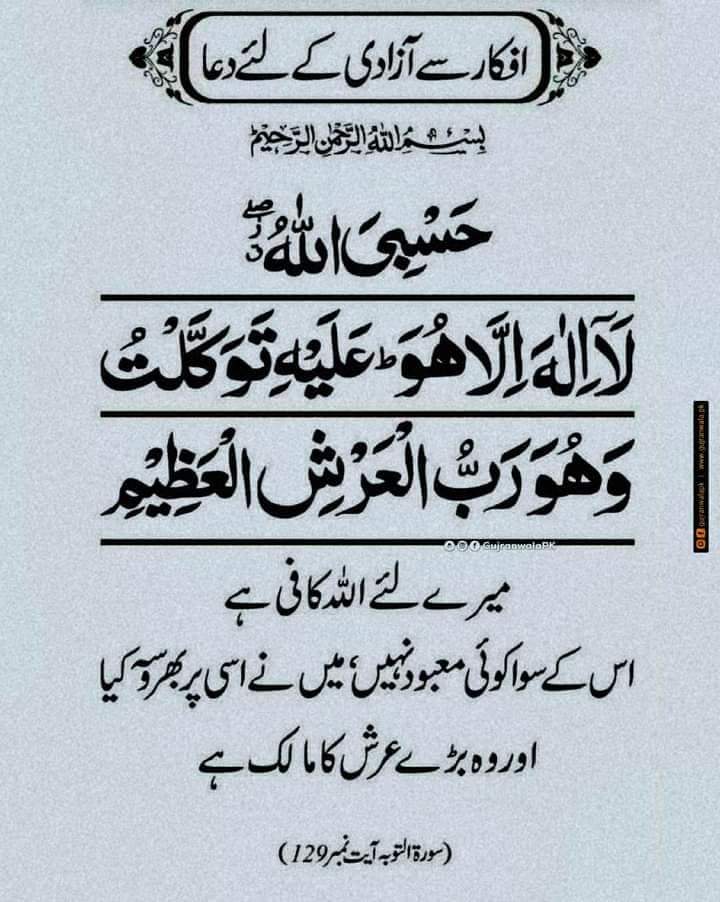 افکار سے آزادی کے لئے دعا
بِسْمِ اللهِ الرَّحْمٰنِ الرَّحِيْمِ
حَسْبِیَ اللّٰهُ ۖ٘
لَاۤ اِلٰهَ اِلَّا هُوَ ؕ عَلَیْهِ تَوَكَّلْتُ
وَ هُوَ رَبُّ الْعَرْشِ الْعَظِیْمِ
GujranwalaPK
میرے لئے اللہ کافی ہے
اس کے سوا کوئی معبود نہیں، میں نے اسی پر بھروسہ کیا
اور وہ بڑے عرش کا مالک ہے
(سورۃ التوبہ آیت نمبر 129)
gujranwalapk | www.gujranwala.pk